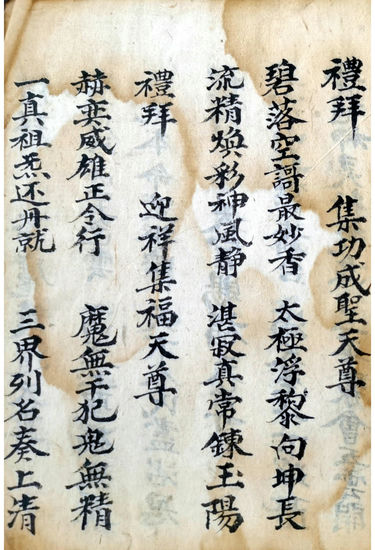 禮拜 集功成聖天尊
碧落空謌最妙香 太極浮黎向坤長
流精煥彩神風静 湛寂真常鍊玉陽
禮拜 迎祥集福天尊
赫奕威雄正令行 魔無干犯鬼無精
一真祖炁还丹就 三界列名奏上清